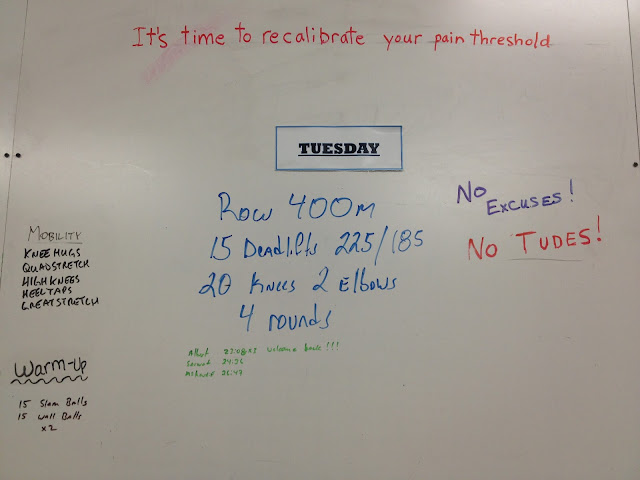 It's time to recalibrate your pain threshold
TUESDAY
Row 400m
15 Deadlifts 225/185
20 Knees 2 Elbows
4 rounds
No
Excuses!
No Tudes!
Mobility
Knee Hugs
Quad Stretch
High Knees
Heel Taps
Great Stretch
Warm-Up
15 Slam Balls
15 Wall Balls
x2
welcome back!!!